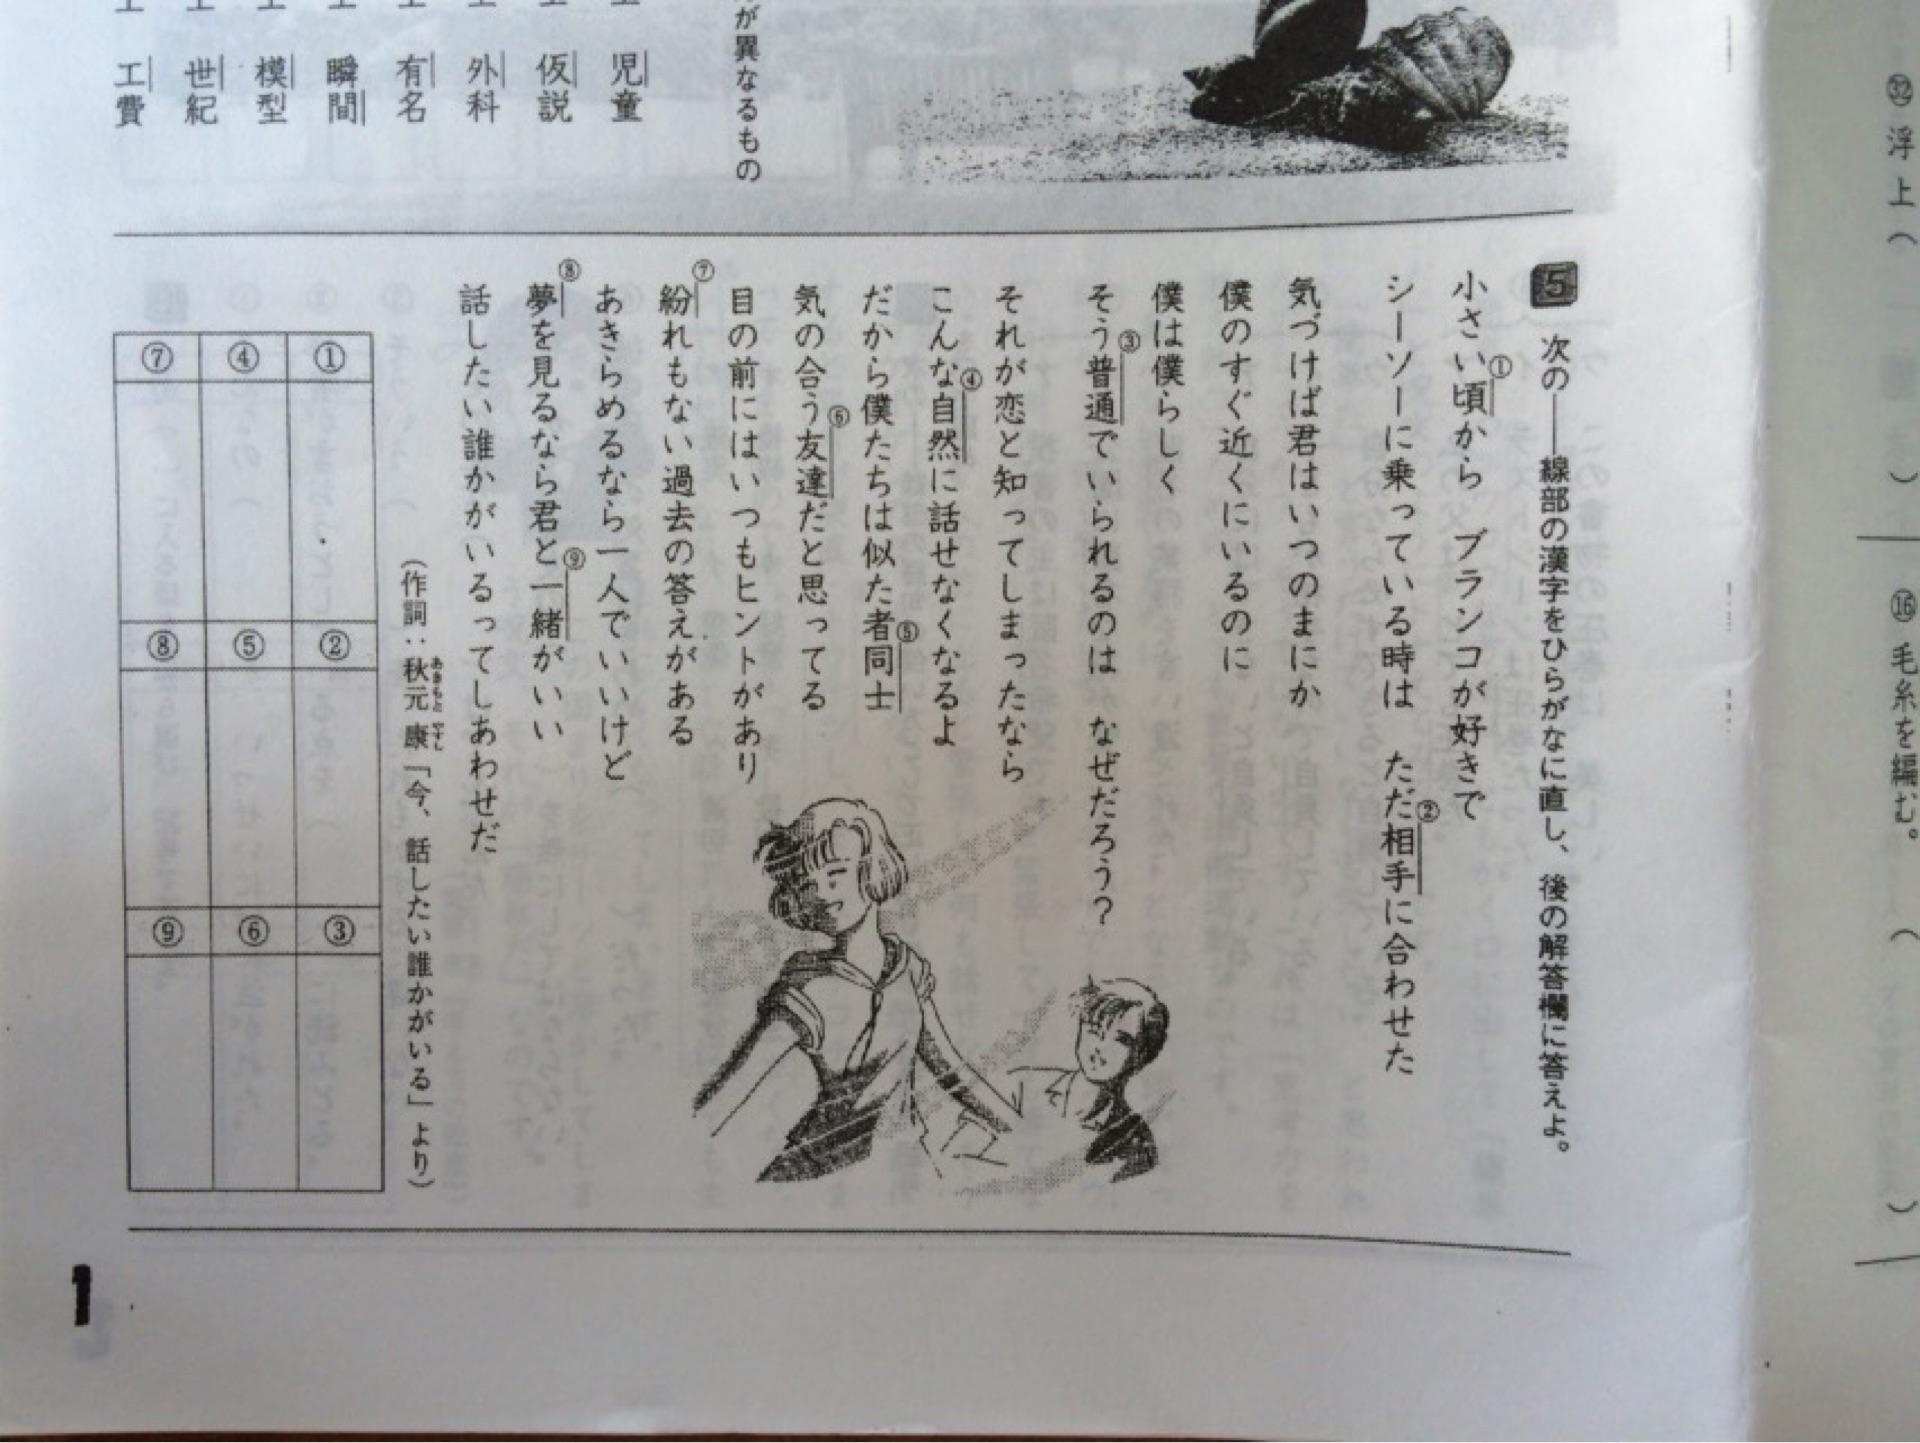 が異なるもの
児童
仮説
外科
有名
瞬間
模型
世紀
工費
5 次の――線部の漢字をひらがなに直し、後の解答欄に答えよ。
小さい①頃から ブランコが好きで
シーソーに乗っている時は ただ②相手に合わせた
気づけば君はいつのまにか
僕のすぐ近くにいるのに
僕は僕らしく
そう③普通でいられるのは なぜだろう?
それが恋と知ってしまったなら
こんな④自然に話せなくなるよ
だから僕たちは似た者⑤同士
気の合う⑥友達だと思ってる
目の前にはいつもヒントがあり
⑦紛れもない過去の答えがある
あきらめるなら一人でいいけど
⑧夢を見るなら君と⑨一緒がいい
話したい誰かがいるってしあわせだ
(作詞:秋元 康「今、話したい誰かがいる」より)
あきもと やすし
① ② ③
④ ⑤ ⑥
⑦ ⑧ ⑨
1
㉜ 浮上( )
⑯ 毛糸を編む。( )